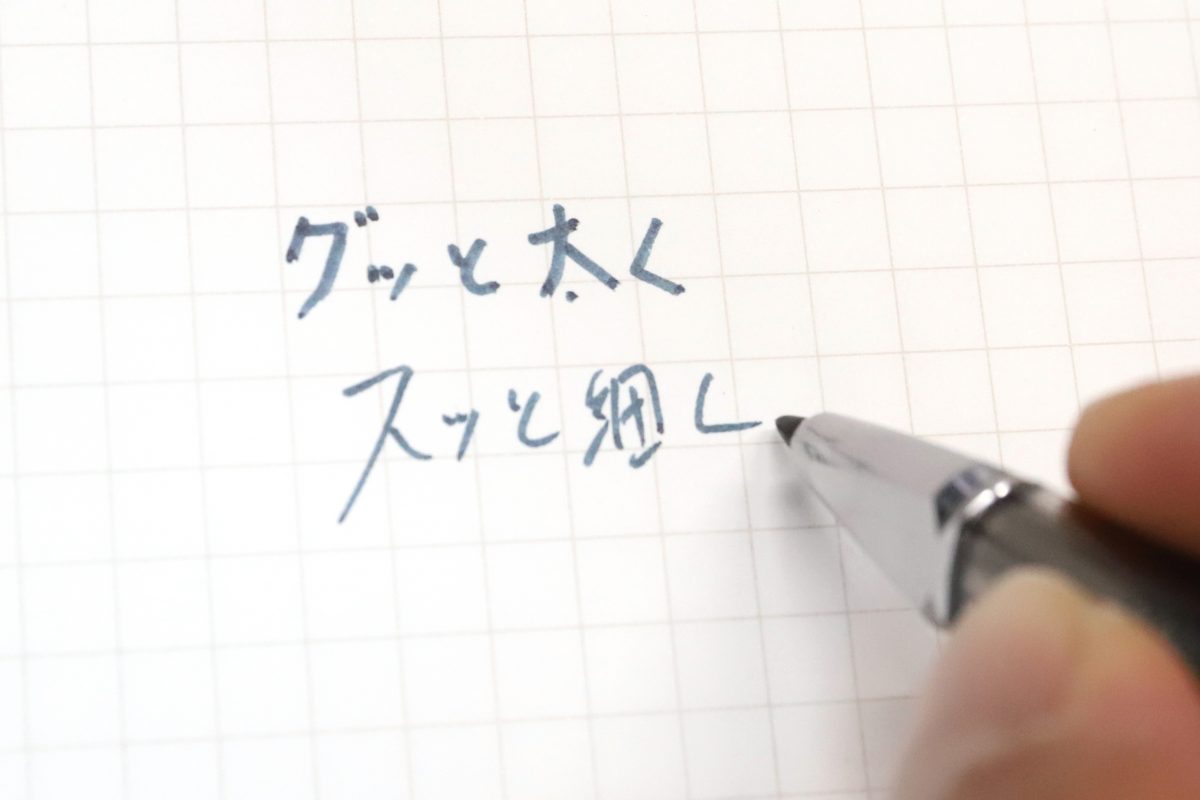 グッと太く
スッと細し